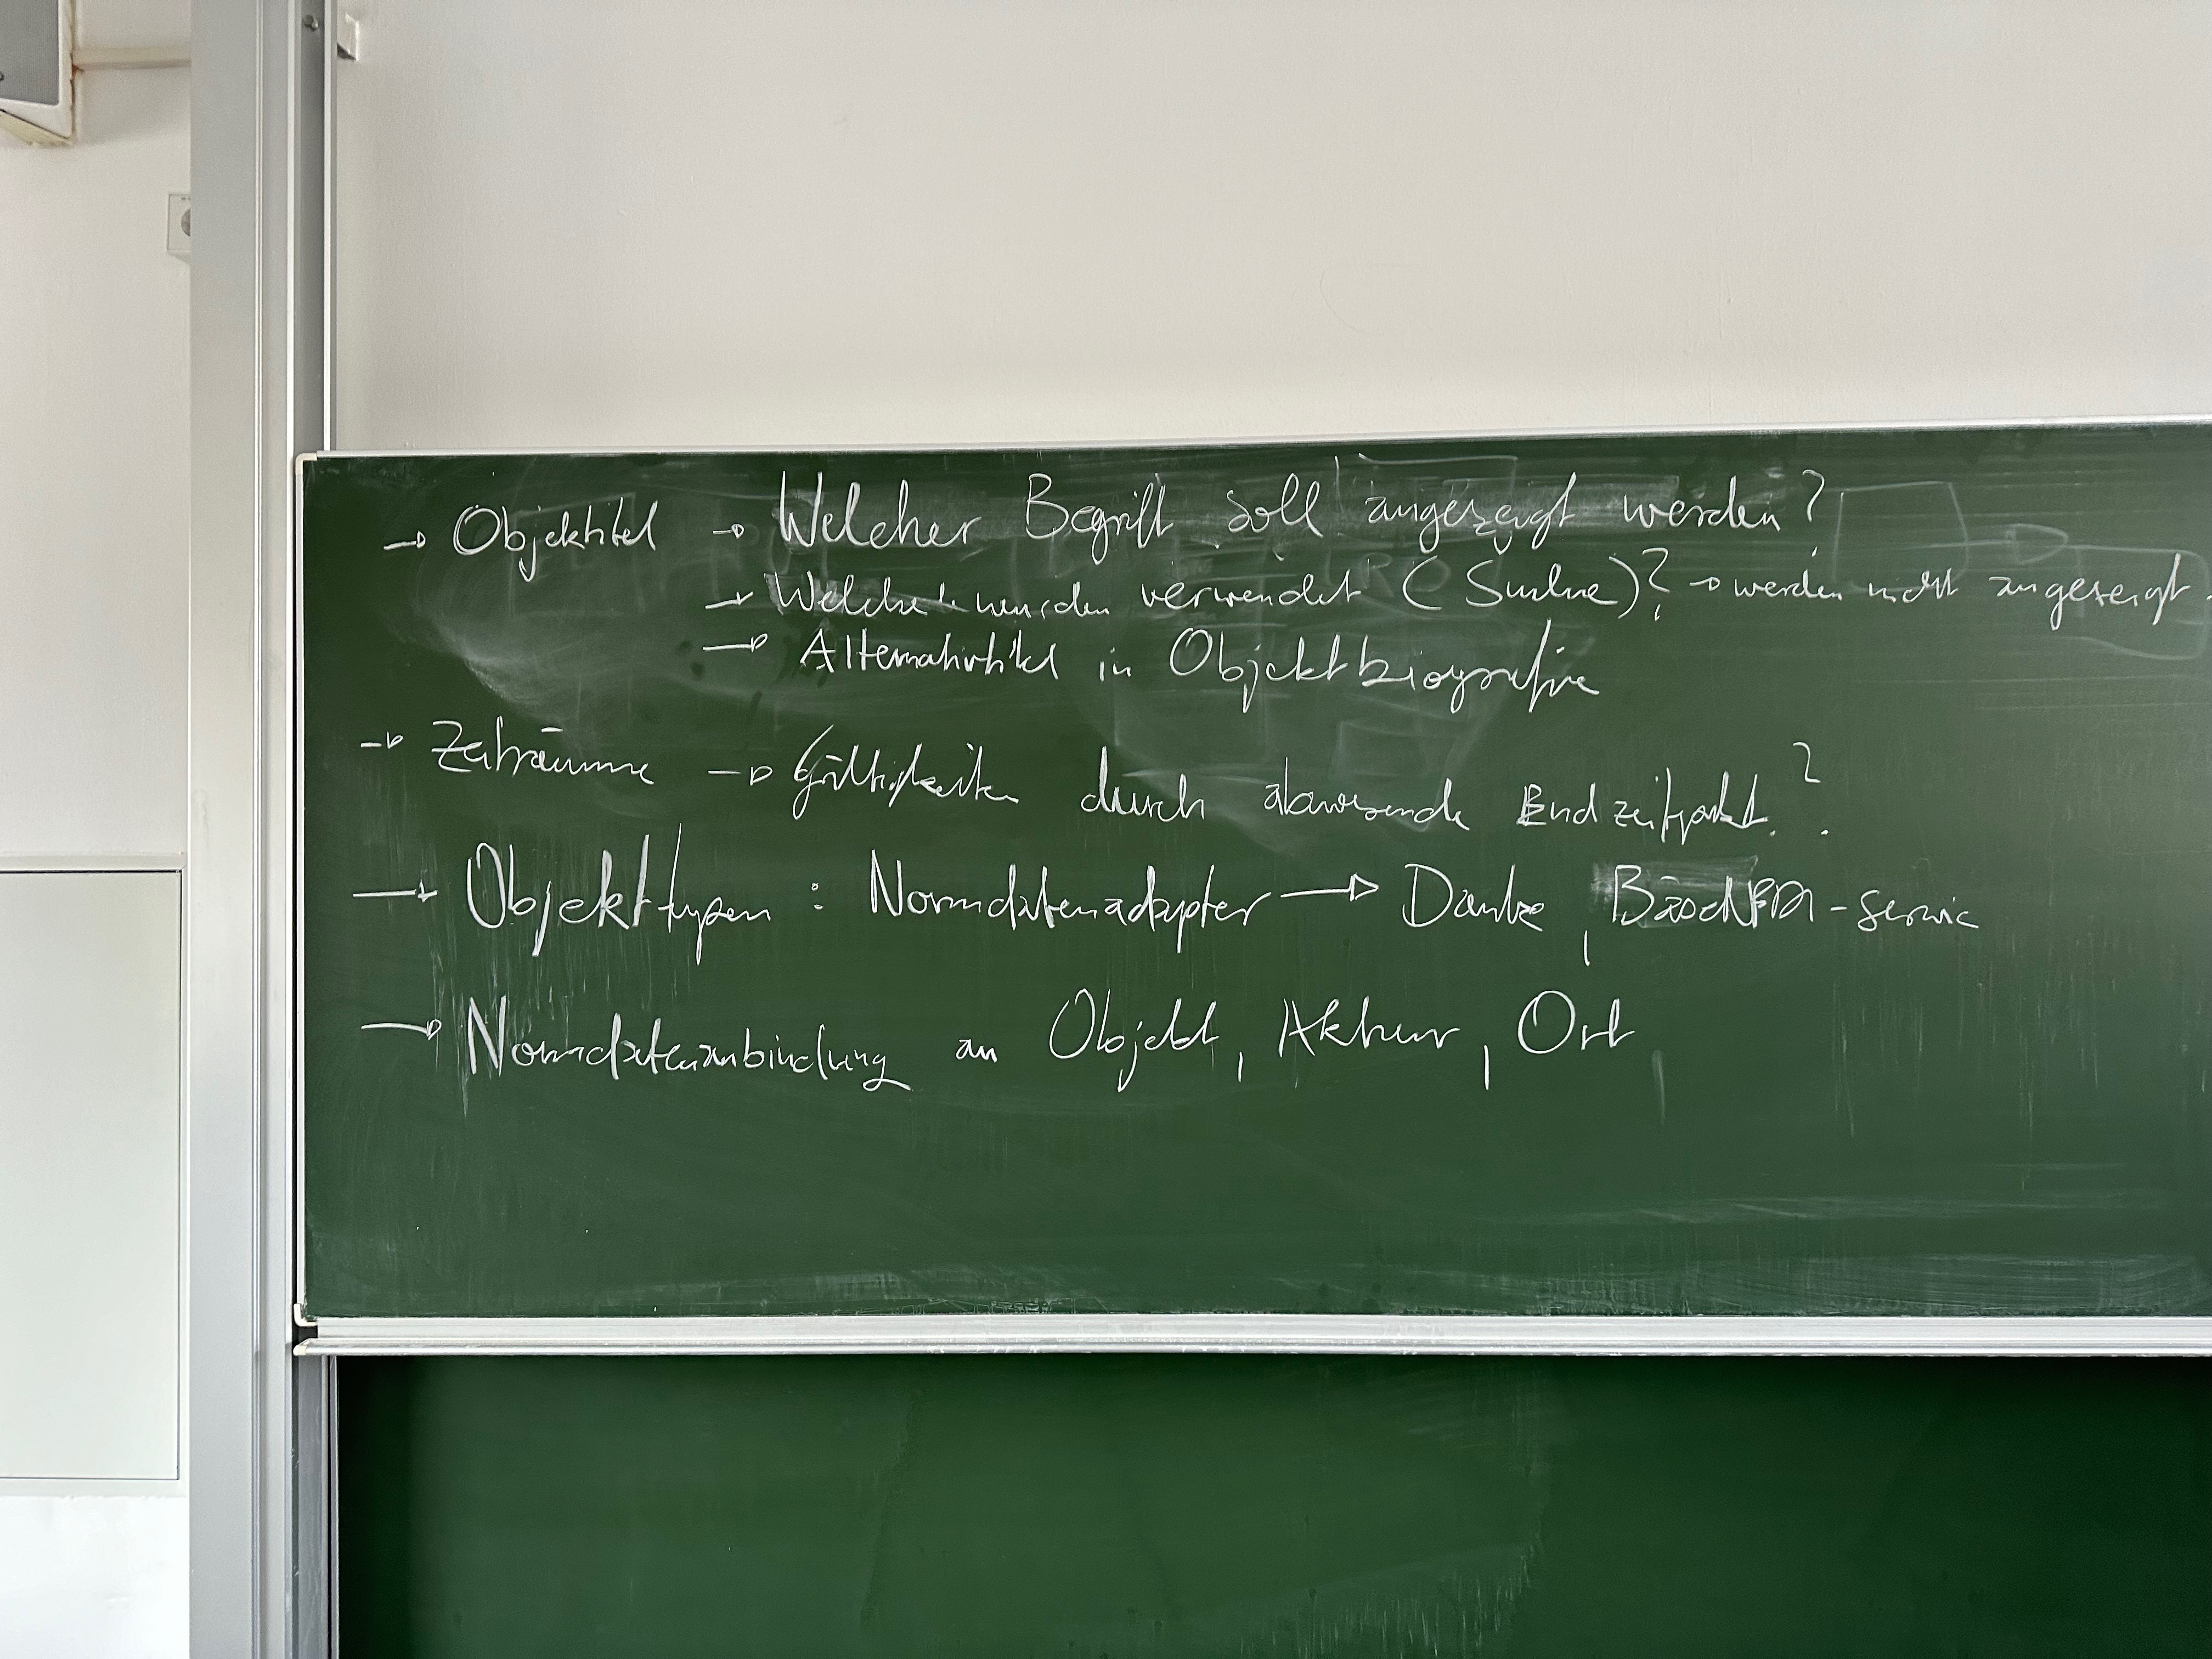 → Objekttitel → Welcher Begriff soll angezeigt werden?
→ Welche werden verwendet (Suche)? → werden nicht angezeigt.
→ Alternativtitel in Objektbiografie
→ Zeiträume → Gültigkeiten durch abwesende Endzeitpkt.?
→ Objekttypen : Normdatenadapter → Dante, -service
→ Normdatenanbindung an Objekt, Akteur, Ort